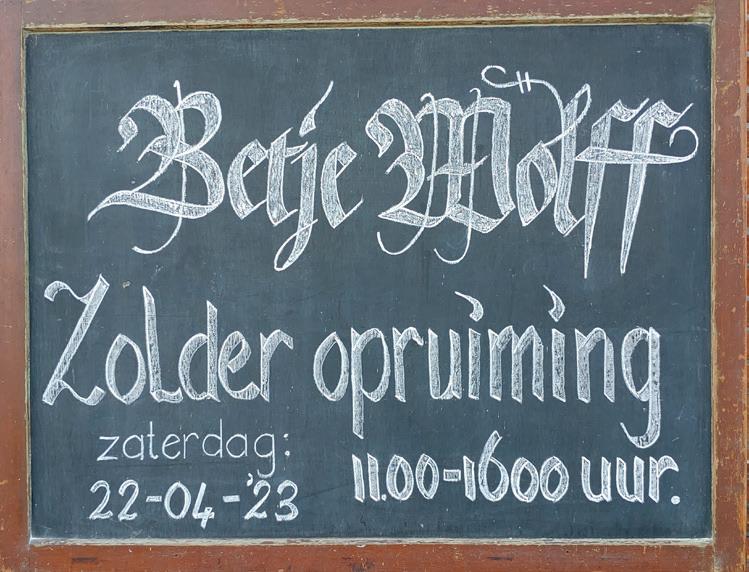 Betje Wolff
Zolder opruiming
zaterdag:
22-04-'23
11.00-1600 uur.